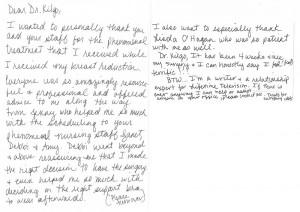 Dear Dr. Kilgo,
I wanted to personally thank you
and your staff for the phenomenal
treatment that I received while
I received my breast reduction.
Everyone was so amazingly resource-
ful & professional and offered
advice to me along the way.
From Jenny who helped me so much
with the scheduling to your
phenomenal nursing staff Janet,
Debbi & Amy. Debbi went beyond
& above reassuring me that I made
the right decision to have the surgery
& even helped me so much with
deciding on the right support bra
to wear afterwards.
I also want to especially thank
Linda O'Hagan who was so patient
with me as well.
Dr. Kilgo, It has been 4 weeks since
my surgery & I can honestly say I feel
terrific!
BTW: I'm a writer & a relationship
expert for Lifetime Television. If there is
ever anything I can help or assist
please contact me. Thanks for